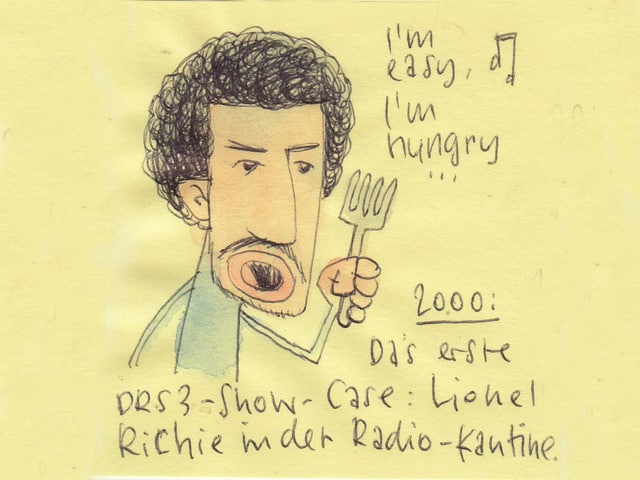 I'm
easy,
I'm
hungry
...
2000:
Das erste
DRS3-Show-Case: Lionel
Richie in der Radio-Kantine.